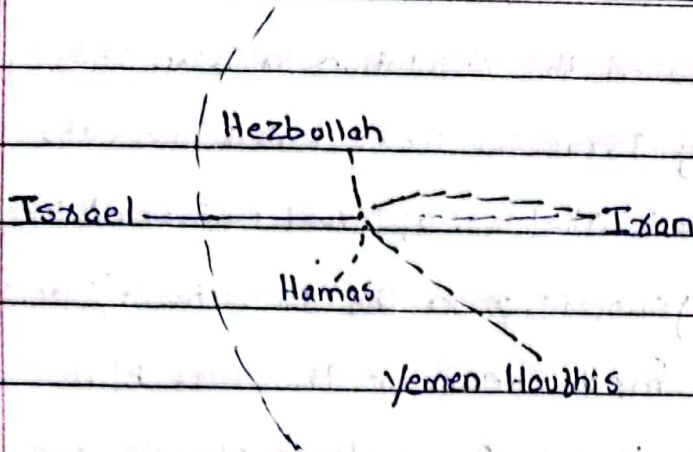 Hezbollah
Israel Iran
Hamas
Yemen Houthis